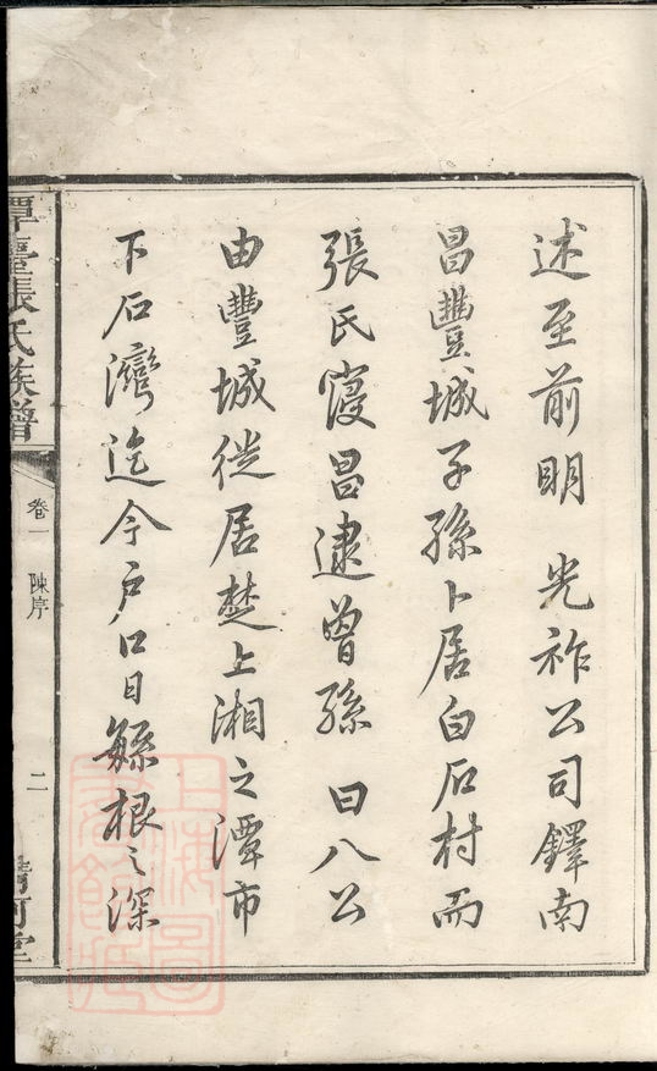 述至前明 光祚公司鐸南
昌豐城子孫卜居白石村而
張氏寖昌逮曾孫 曰八公
由豐城徙居楚上湘之潭市
下石灣迄今戶口日繇根之深
潭臺張氏族譜
卷一 陳序
二
清河堂
上海圖書館藏